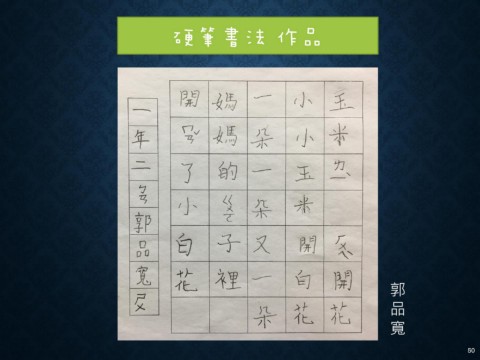 硬筆書法 作品
玉米 開花
小小玉米開白花
一朵一朵又一朵
媽媽的 子裡
開 了小白花
一年二 郭品寬
郭品寬
50